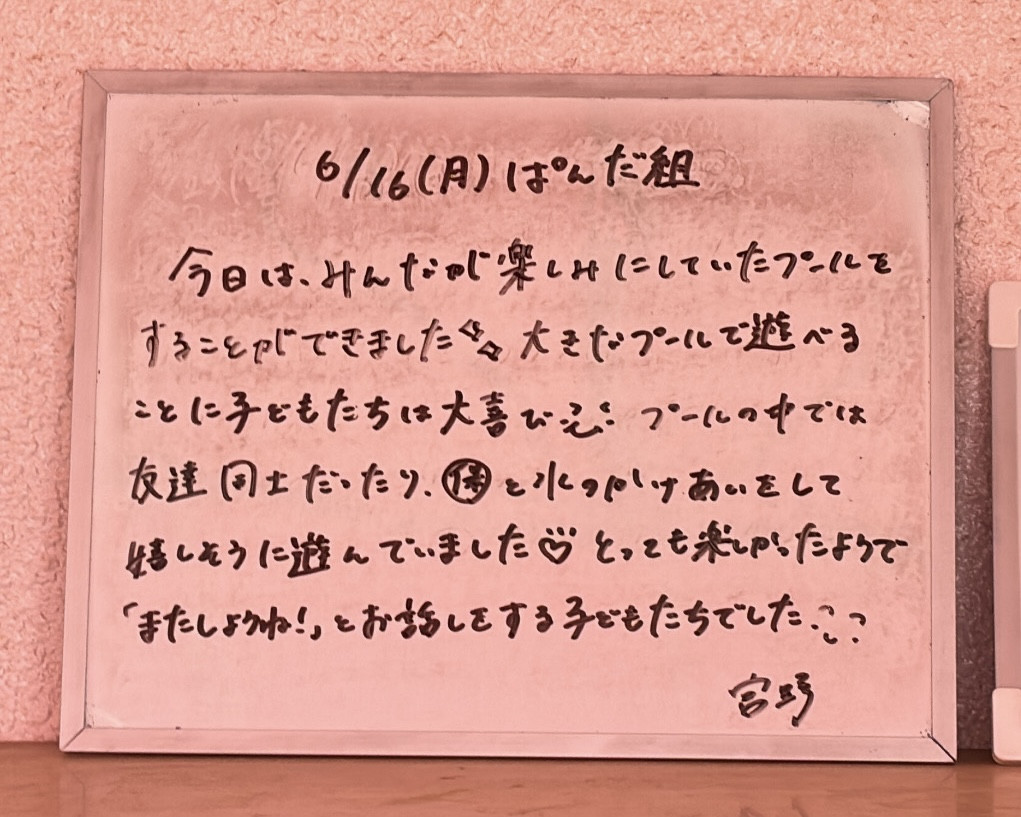 6/16(月) ぱんだ組
今日は、みんなが楽しみにしていたプールを
することができました 大きなプールで遊べる
ことに子どもたちは大喜び プールの中では
友達同士だったり、㋭と水のかけあいをして
嬉しそうに遊んでいました♡ とっても楽しかったようで
「またしようね!」とお話しをする子どもたちでした
宮野